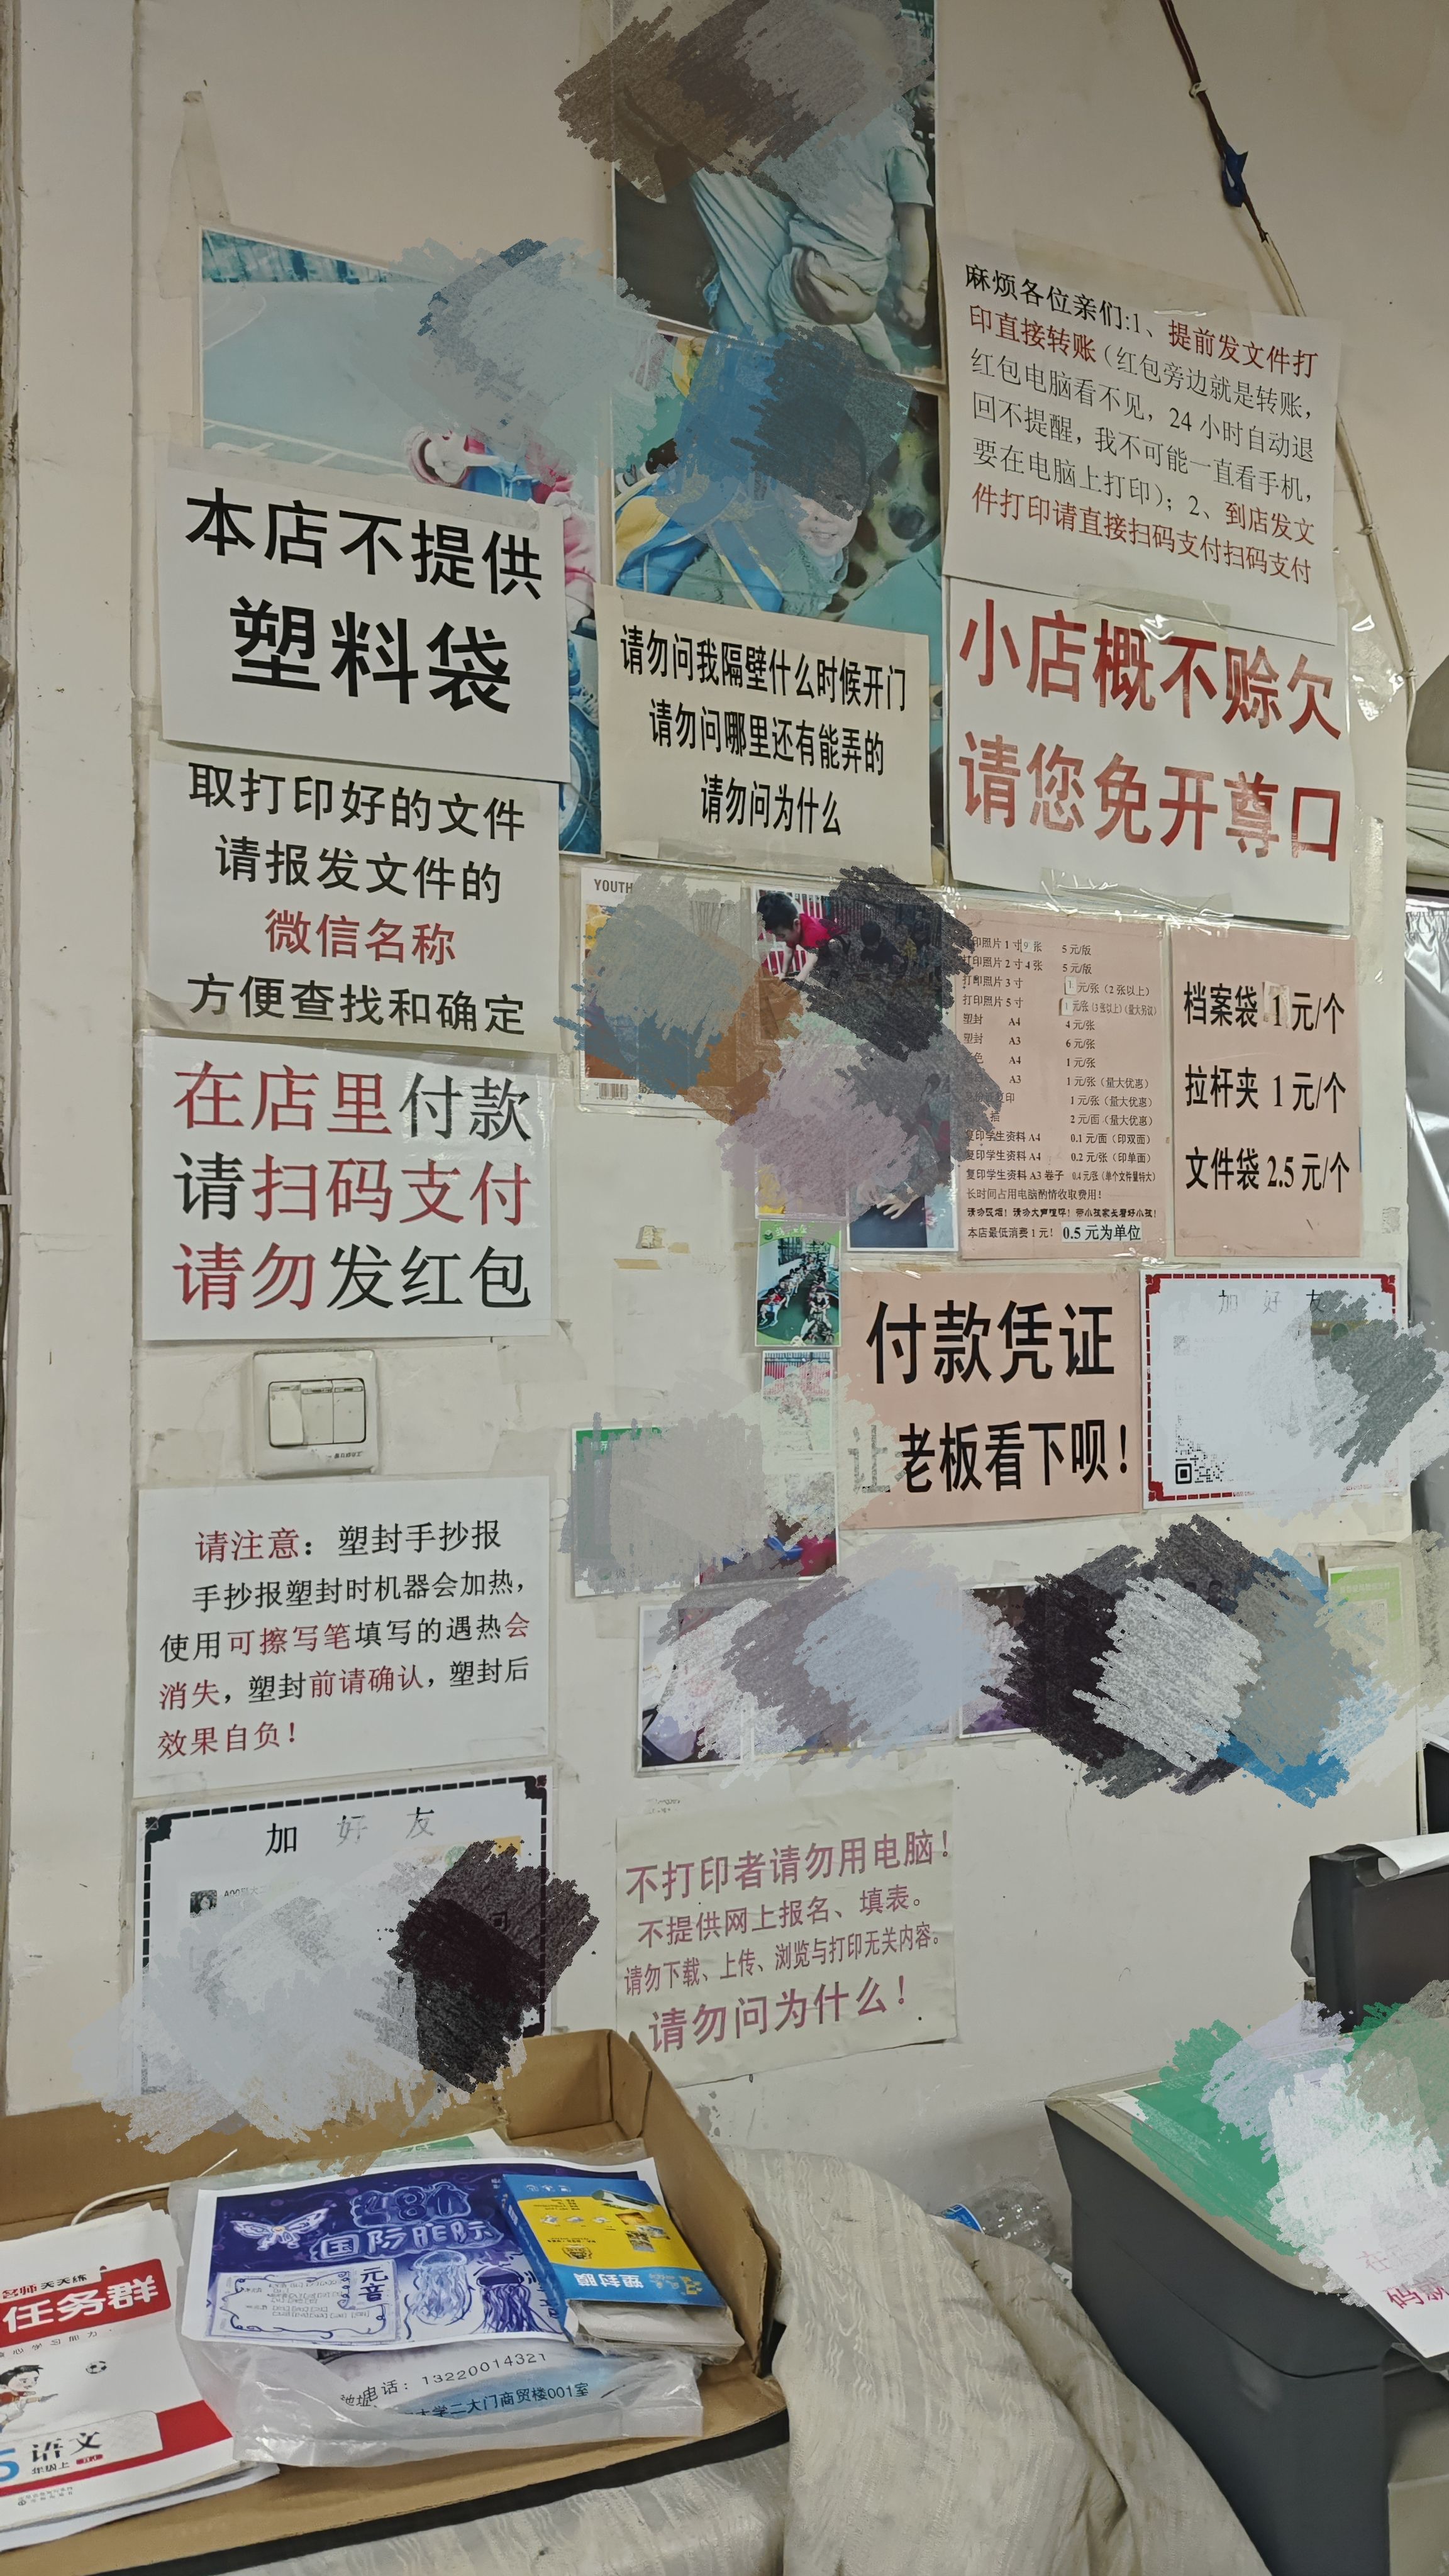 麻烦各位亲们:1、提前发文件打
印直接转账（红包旁边就是转账，
红包电脑看不见，24小时自动退
回不提醒，我不可能一直看手机，
要在电脑上打印）；2、到店发文
件打印请直接扫码支付扫码支付
本店不提供
塑料袋
请勿问我隔壁什么时候开门
请勿问哪里还有能弄的
请勿问为什么
小店概不赊欠
请您免开尊口
取打印好的文件
请报发文件的
微信名称
方便查找和确定
YOUTH
打印照片1寸9张 5元/版
打印照片2寸4张 5元/版
打印照片3寸 1元/张（2张以上）
打印照片5寸 1元/张（3张以上）（量大另议）
塑封 A4 4元/张
塑封 A3 6元/张
色 A4 1元/张
A3 1元/张（量大优惠）
印 1元/张（量大优惠）
2元/面（量大优惠）
复印学生资料A4 0.1元/面（印双面）
复印学生资料A4 0.2元/张（印单面）
复印学生资料A3卷子 0.4元/张（单个文件量特大）
长时间占用电脑酌情收取费用！
请勿吸烟！请勿大声喧哗！带小孩家长看好小孩！
本店最低消费1元！ 0.5元为单位
档案袋 1元/个
拉杆夹 1元/个
文件袋 2.5元/个
在店里付款
请扫码支付
请勿发红包
付款凭证
让老板看下呗！
加好友
请注意：塑封手抄报
手抄报塑封时机器会加热，
使用可擦写笔填写的遇热会
消失，塑封前请确认，塑封后
效果自负！
加好友
不打印者请勿用电脑！
不提供网上报名、填表。
请勿下载、上传、浏览与打印无关内容。
请勿问为什么！
国际
元音
塑封膜
名师天天练
任务群
心学习能力
语文
年级上
电话：13220014321
大学二大门商贸楼001室
码